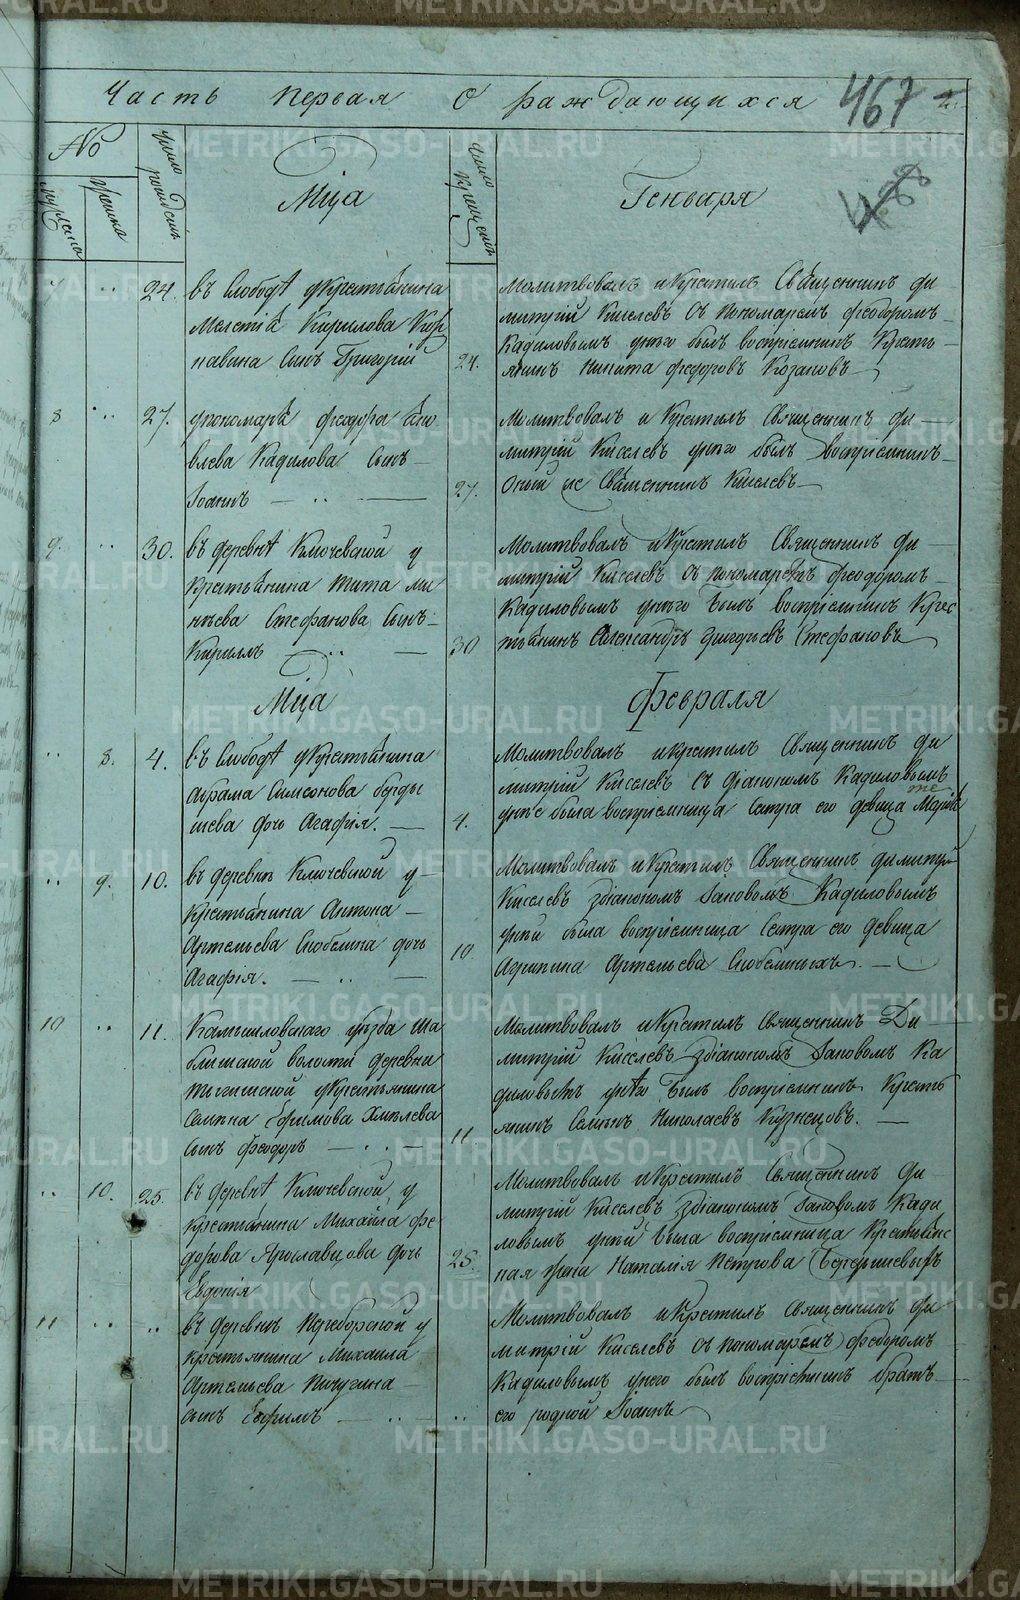 Часть первая О раждающихся 467
№
Мужеска
Женска
Число рожденія
Мца
Число Крещенія
Генваря
7 24. въ Слободѣ у Крестьянина
Мелетія Кирилова Кор
навина Сынъ Григорій
24.
Молитвовалъ и Крестилъ Священникъ Ди
митрій Киселевъ Съ пономаремъ Феодоромъ
Кадиловымъ у него былъ воспріемникъ Кресть
янинъ Никита Федоровъ Козановъ
8 27. у пономаря Феодора
влева Кадилова Сынъ
Іоаннъ
27.
Молитвовалъ и Крестилъ Священникъ Ди
митрій Киселевъ у него былъ воспріемникъ
Оный же Священникъ Киселевъ
9. 30. въ деревнѣ Ключевской у
Крестьянина Тита Ми
нѣева Стефанова Сынъ
Кириллъ
30
Молитвовалъ и Крестилъ Священникъ Ди
митрій Киселевъ съ пономаремъ Феодоромъ
Кадиловымъ у него былъ воспріемникъ Крес
тьянинъ Александръ Стефановъ
Мца Февраля
8. 4. въ Слободѣ у Крестьянина
Абрама Симеонова Бурды
шева дочь Агафія.
4.
Молитвовалъ и Крестилъ Священникъ Ди
митрій Киселевъ съ діакономъ Кадиловымъ
у нее была воспріемница Сестра его девица
9. 10. въ деревнѣ Ключевской у
Крестьянина Антона
Артемьева Скобелина дочь
Агафія.
10
Молитвовалъ и Крестилъ Священникъ Димитрій
Киселевъ з діакономъ Іаковомъ Кадиловымъ
у ней была воспріемница Сестра его девица
Агрипина Артемьева Скобелиныхъ.
10 11. Камышловскаго уѣзда Ша
блишской волости деревни
Тыгишской у Крестьянина
Семена Ефимова Хмѣлева
сынъ Феодоръ
11
Молитвовалъ и Крестилъ Священникъ Ди
митрій Киселевъ з діакономъ Іаковомъ Ка
диловымъ у него былъ воспріемникъ Кресть
янинъ Семенъ Николаевъ Кузнецовъ.
10. 25. въ деревнѣ Ключевской у
крестьянина Михайла Фе
дорова Ярославцова дочь
Евдокія
25.
Молитвовалъ и Крестилъ Священникъ Ди
митрій Киселевъ з діакономъ Іаковомъ Кади
ловымъ у ней была воспріемница Крестьянс
кая жена Наталія Петрова
11 въ деревнѣ Переборской у
крестьянина Михаила
Артемьева Пичугина
сынъ Ефимъ
Молитвовалъ и Крестилъ Священникъ Ди
митрій Киселевъ съ пономаремъ Феодоромъ
Кадиловымъ у него былъ воспріемникъ братъ
его родной Іоаннъ